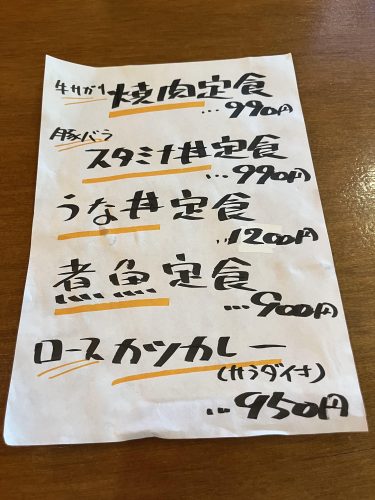 牛サガリ 焼肉定食
…990円
豚バラ
スタミナ丼定食
…990円
うな丼定食
…1200円
煮魚定食
…900円
ロースカツカレー
(サラダイナ)
…950円